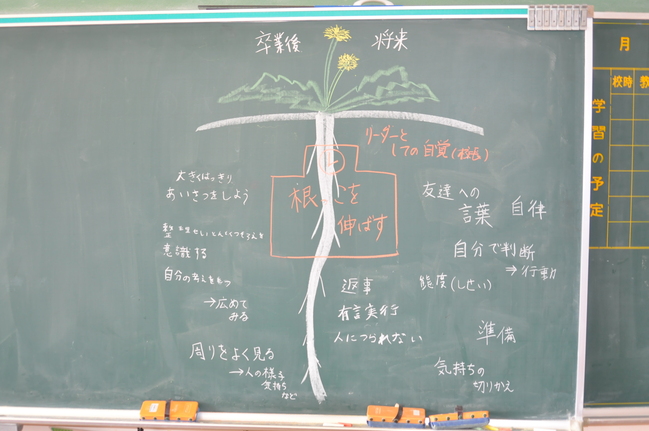 卒業後 将来
リーダーと
しての自覚(校長)
根っこを
伸ばす
大きくはっきり
あいさつをしよう
意識する
自分の考えをもつ
→広めて
みる
周りをよく見る
→人の様子
気持ち
など
返事
有言実行
人につられない
友達への
言葉 自律
自分で判断
→行動
態度(しせい)
準備
気持ちの
切りかえ
月
校時
学習の予定